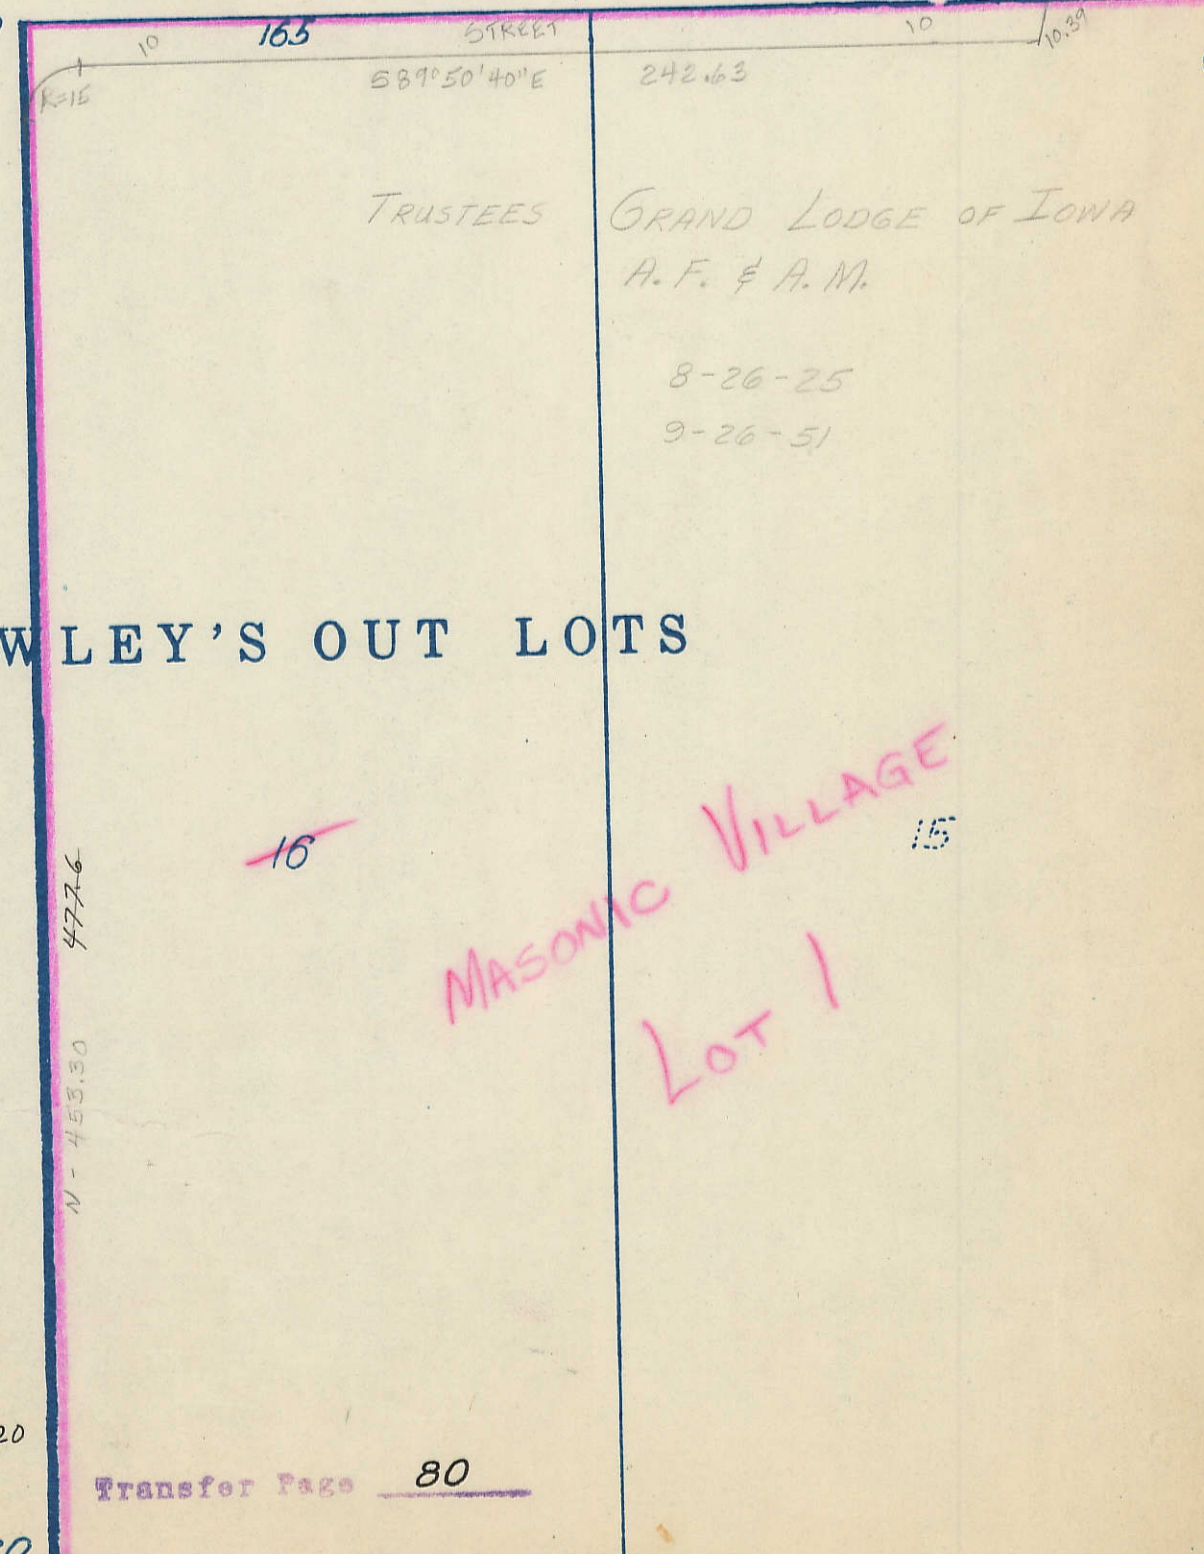 10 165 STREET 10 10.39
R=15 S89°50'40"E 242.63
TRUSTEES GRAND LODGE OF IOWA
A.F. & A.M.
8-26-25
9-26-51
WLEY'S OUT LOTS
MASONIC VILLAGE
16
15
477.6
LOT 1
N - 453.30
20
Transfer Page 80